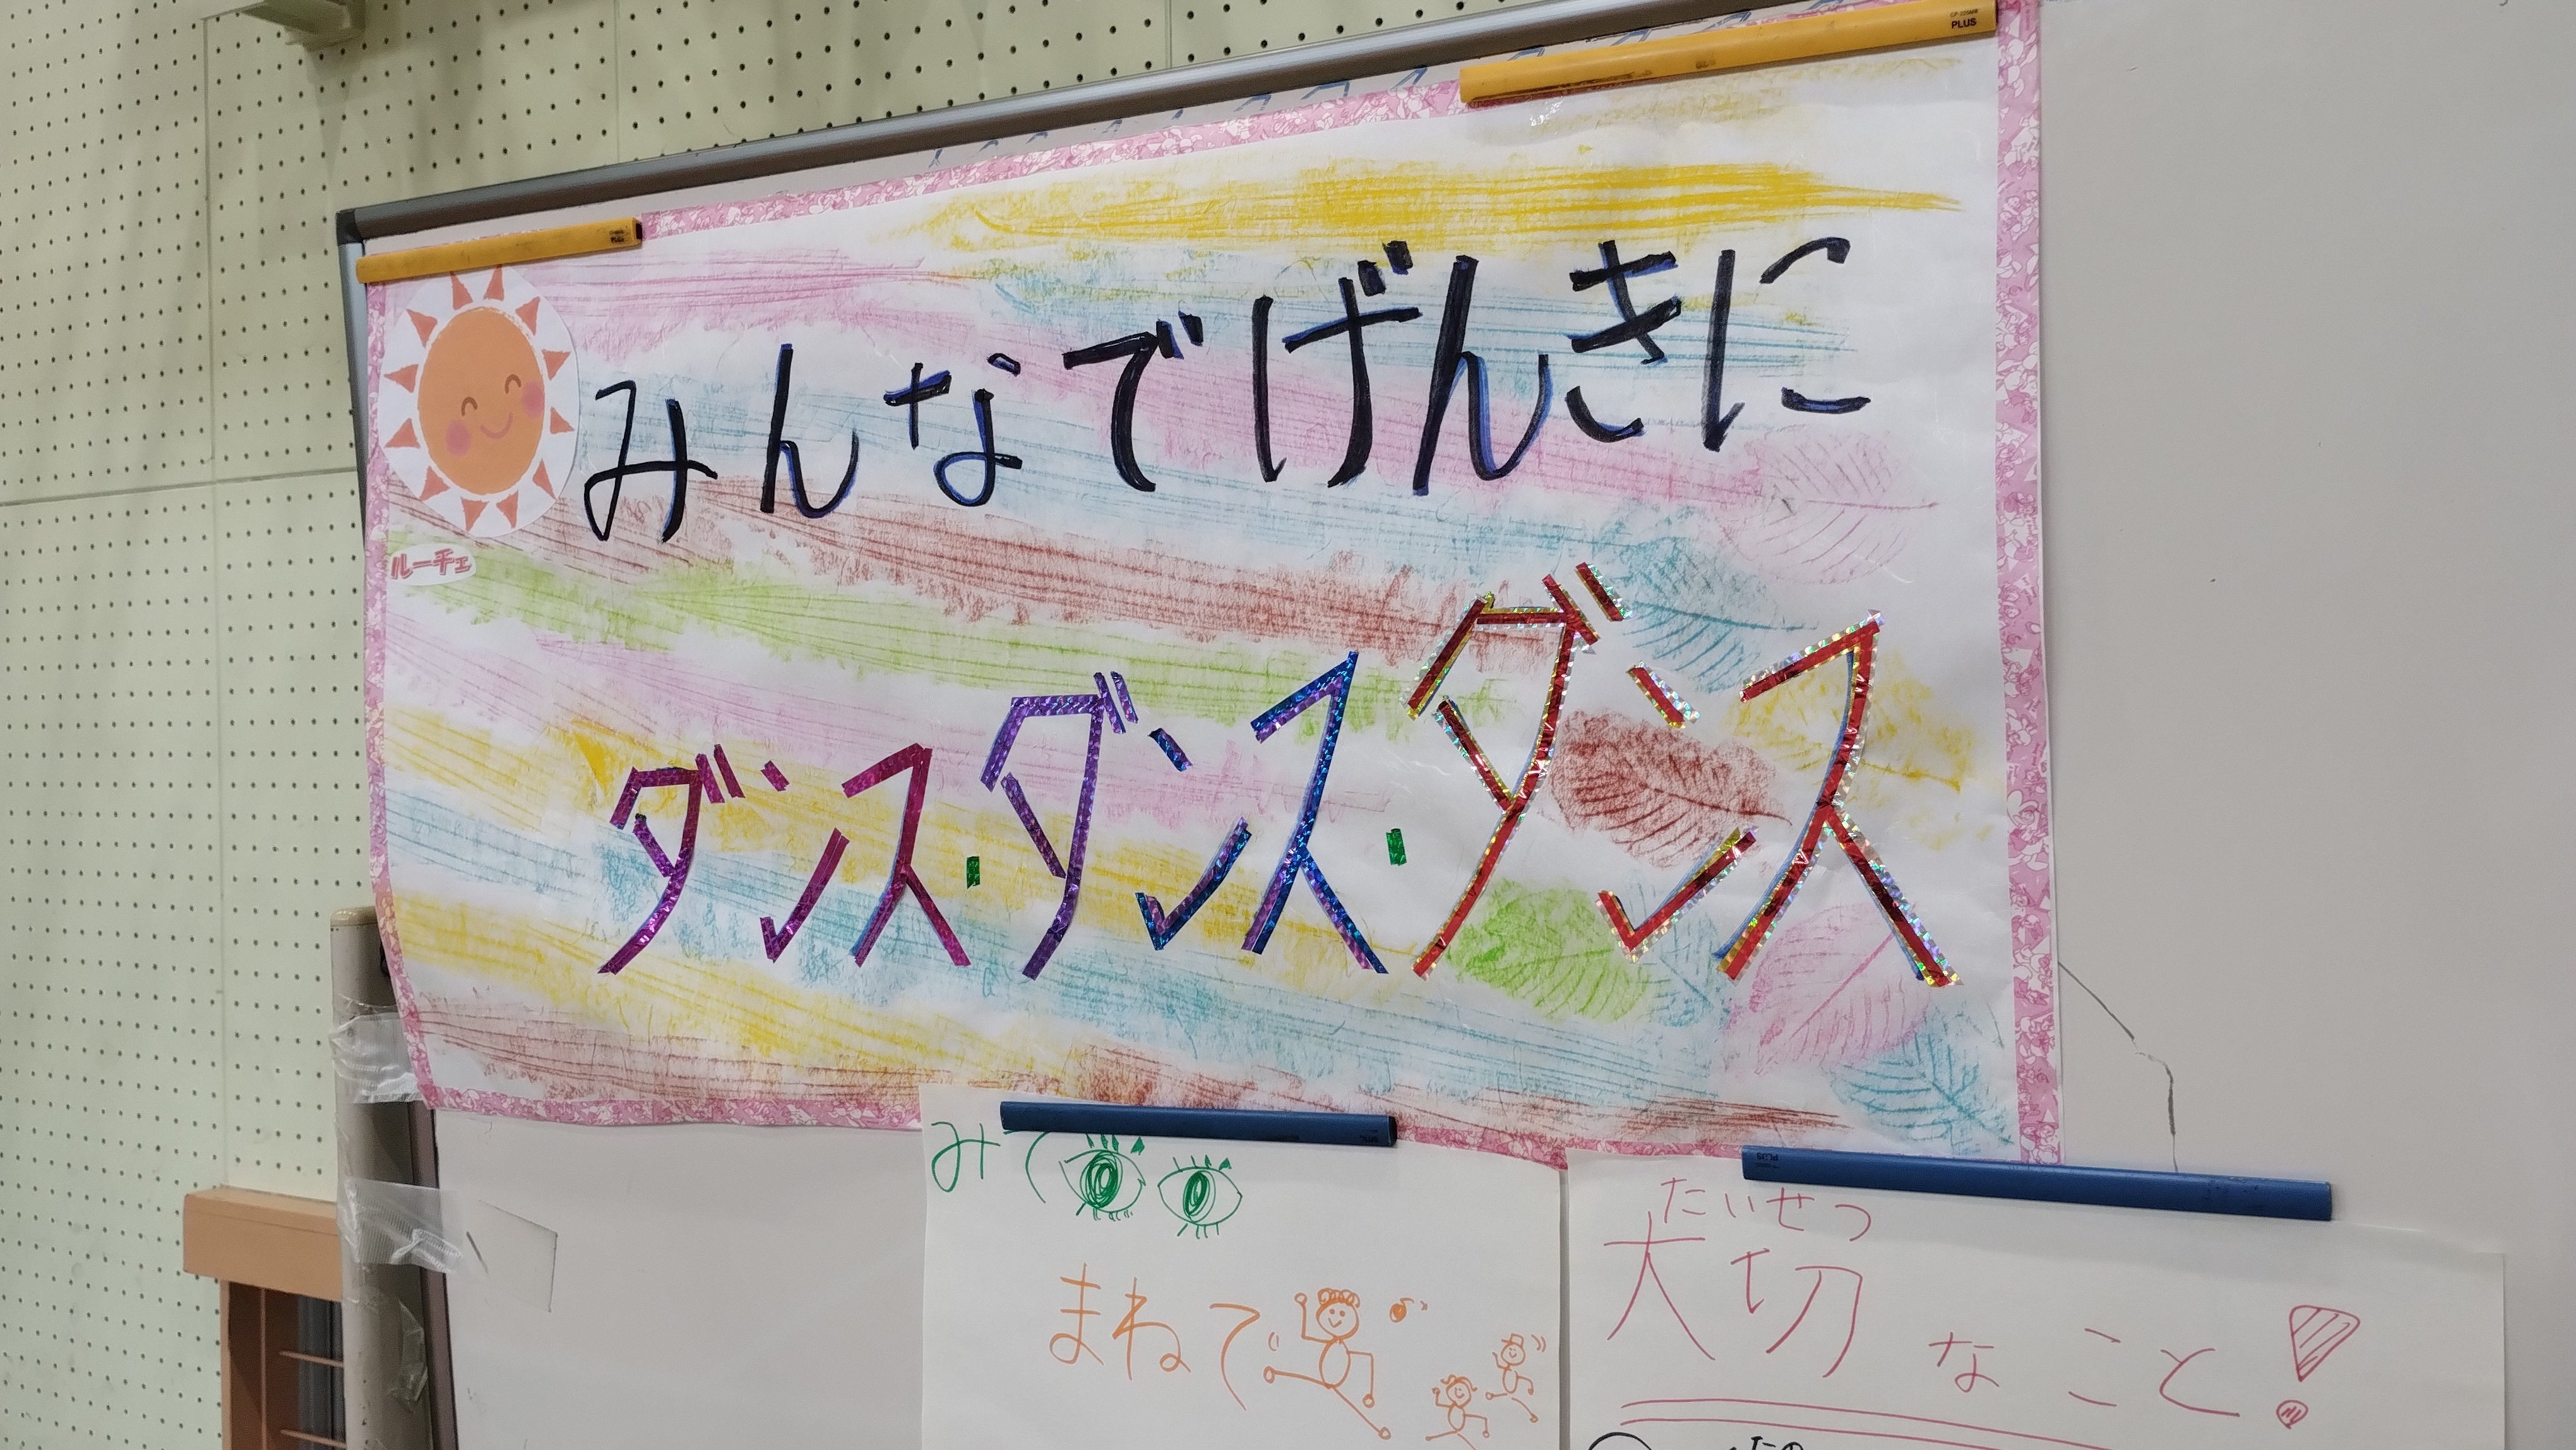 みんなでげんきに
ルーチェ
ダンス・ダンス・ダンス
みて
まねて
たいせつ
大切なこと!
PLUS
PLUS